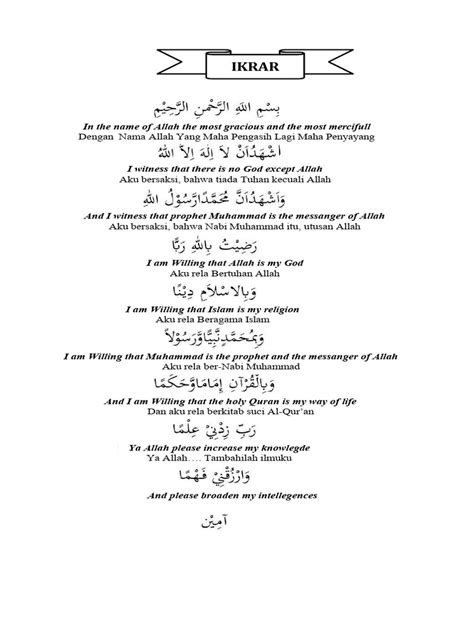 IKRAR
بِسْمِ اللهِ الرَّحْمٰنِ الرَّحِيْمِ
In the name of Allah the most gracious and the most mercifull
Dengan Nama Allah Yang Maha Pengasih Lagi Maha Penyayang
اَشْهَدُاَنْ لاَ اِلٰهَ اِلاَّ اللهُ
I witness that there is no God except Allah
Aku bersaksi, bahwa tiada Tuhan kecuali Allah
وَاَشْهَدُاَنَّ مُحَمَّدًارَسُوْلُ اللهِ
And I witness that prophet Muhammad is the messanger of Allah
Aku bersaksi, bahwa Nabi Muhammad itu, utusan Allah
رَضِيْتُ بِاللهِ رَبًّا
I am Willing that Allah is my God
Aku rela Bertuhan Allah
وَبِالاِسْلاَمِ دِيْنًا
I am Willing that Islam is my religion
Aku rela Beragama Islam
وَبِمُحَمَّدٍنَبِيًّاوَرَسُوْلاً
I am Willing that Muhammad is the prophet and the messanger of Allah
Aku rela ber-Nabi Muhammad
وَبِالْقُرْآنِ اِمَامًاوَّحَكَمًا
And I am Willing that the holy Quran is my way of life
Dan aku rela berkitab suci Al-Qur’an
رَبِّ زِدْنِيْ عِلْمًا
Ya Allah please increase my knowlegde
Ya Allah…. Tambahilah ilmuku
وَارْزُقْنِيْ فَهْمًا
And please broaden my intellegences
آمِيْن